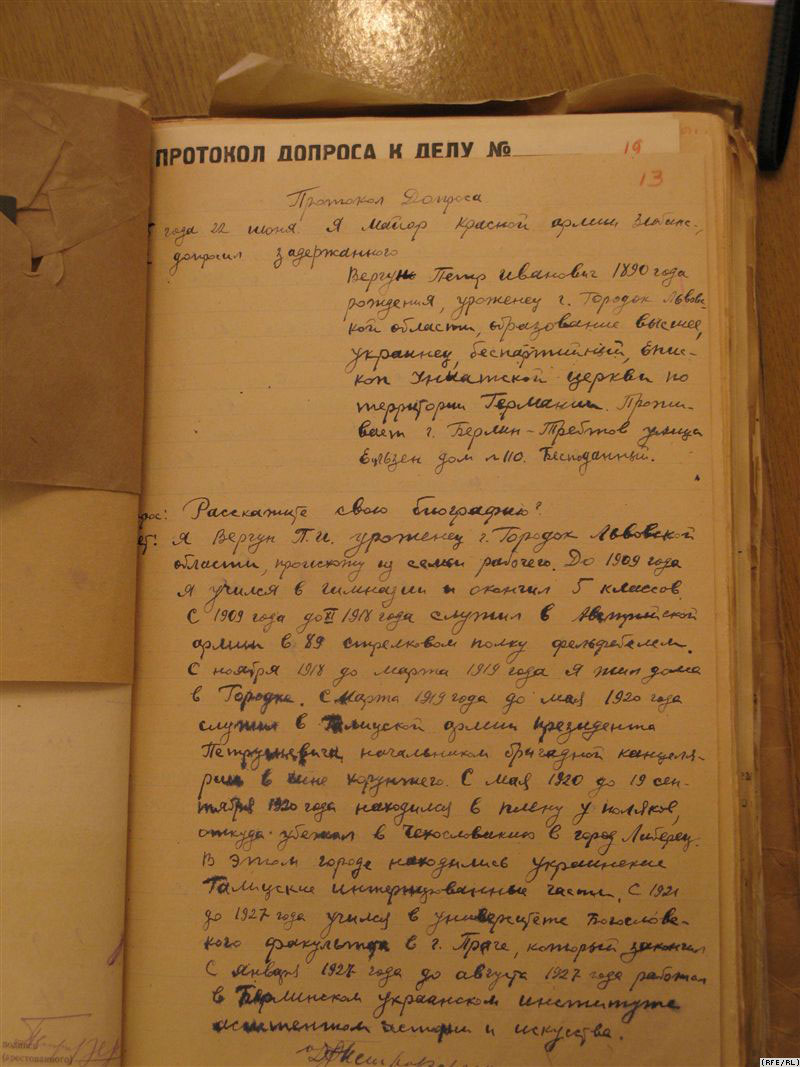 ПРОТОКОЛ ДОПРОСА К ДЕЛУ №
19
13
Протокол Допроса
года 22 июня. Я Майор Красной армии
допросил задержанного
Вергун Петр Иванович 1890 года
рождения, уроженец г. Городок Львовс-
кой области, образование высшее,
украинец, беспартийный, Епис-
коп Униатской церкви по
территории Германии. Прожи-
вает г. Берлин-Трептов улица
дом №110. Бесподанный.
рос: Расскажите свою биографию?
ет: Я Вергун П.И. уроженец г. Городок Львовской
области, происхожу из семьи рабочего. До 1909 года
я учился в гимназии и окончил 5 классов.
С 1909 года до XI 1918 года служил в Австрийской
армии в 89 стрелковом полку фельдфебелем.
С ноября 1918 до марта 1919 года я жил дома
в Городке. С марта 1919 года до мая 1920 года
служил в Галицской армии президента
Петрушевича, начальником бригадной канцеля-
рии в чине хорунжего. С мая 1920 до 19 сен-
тября 1920 года находился в плену у поляков,
откуда убежал в Чехословакию в город Либерец.
В этом городе находились украинские
Галицские интернированные части. С 1921
до 1927 года учился в университете Богословс-
кого факультета в г. Праге, который закончил
С января 1927 года до августа 1927 года работал
в Берлинском украанском институте
асистентом истории и искусства.
подпись
(арестованного)
(RFE/RL)